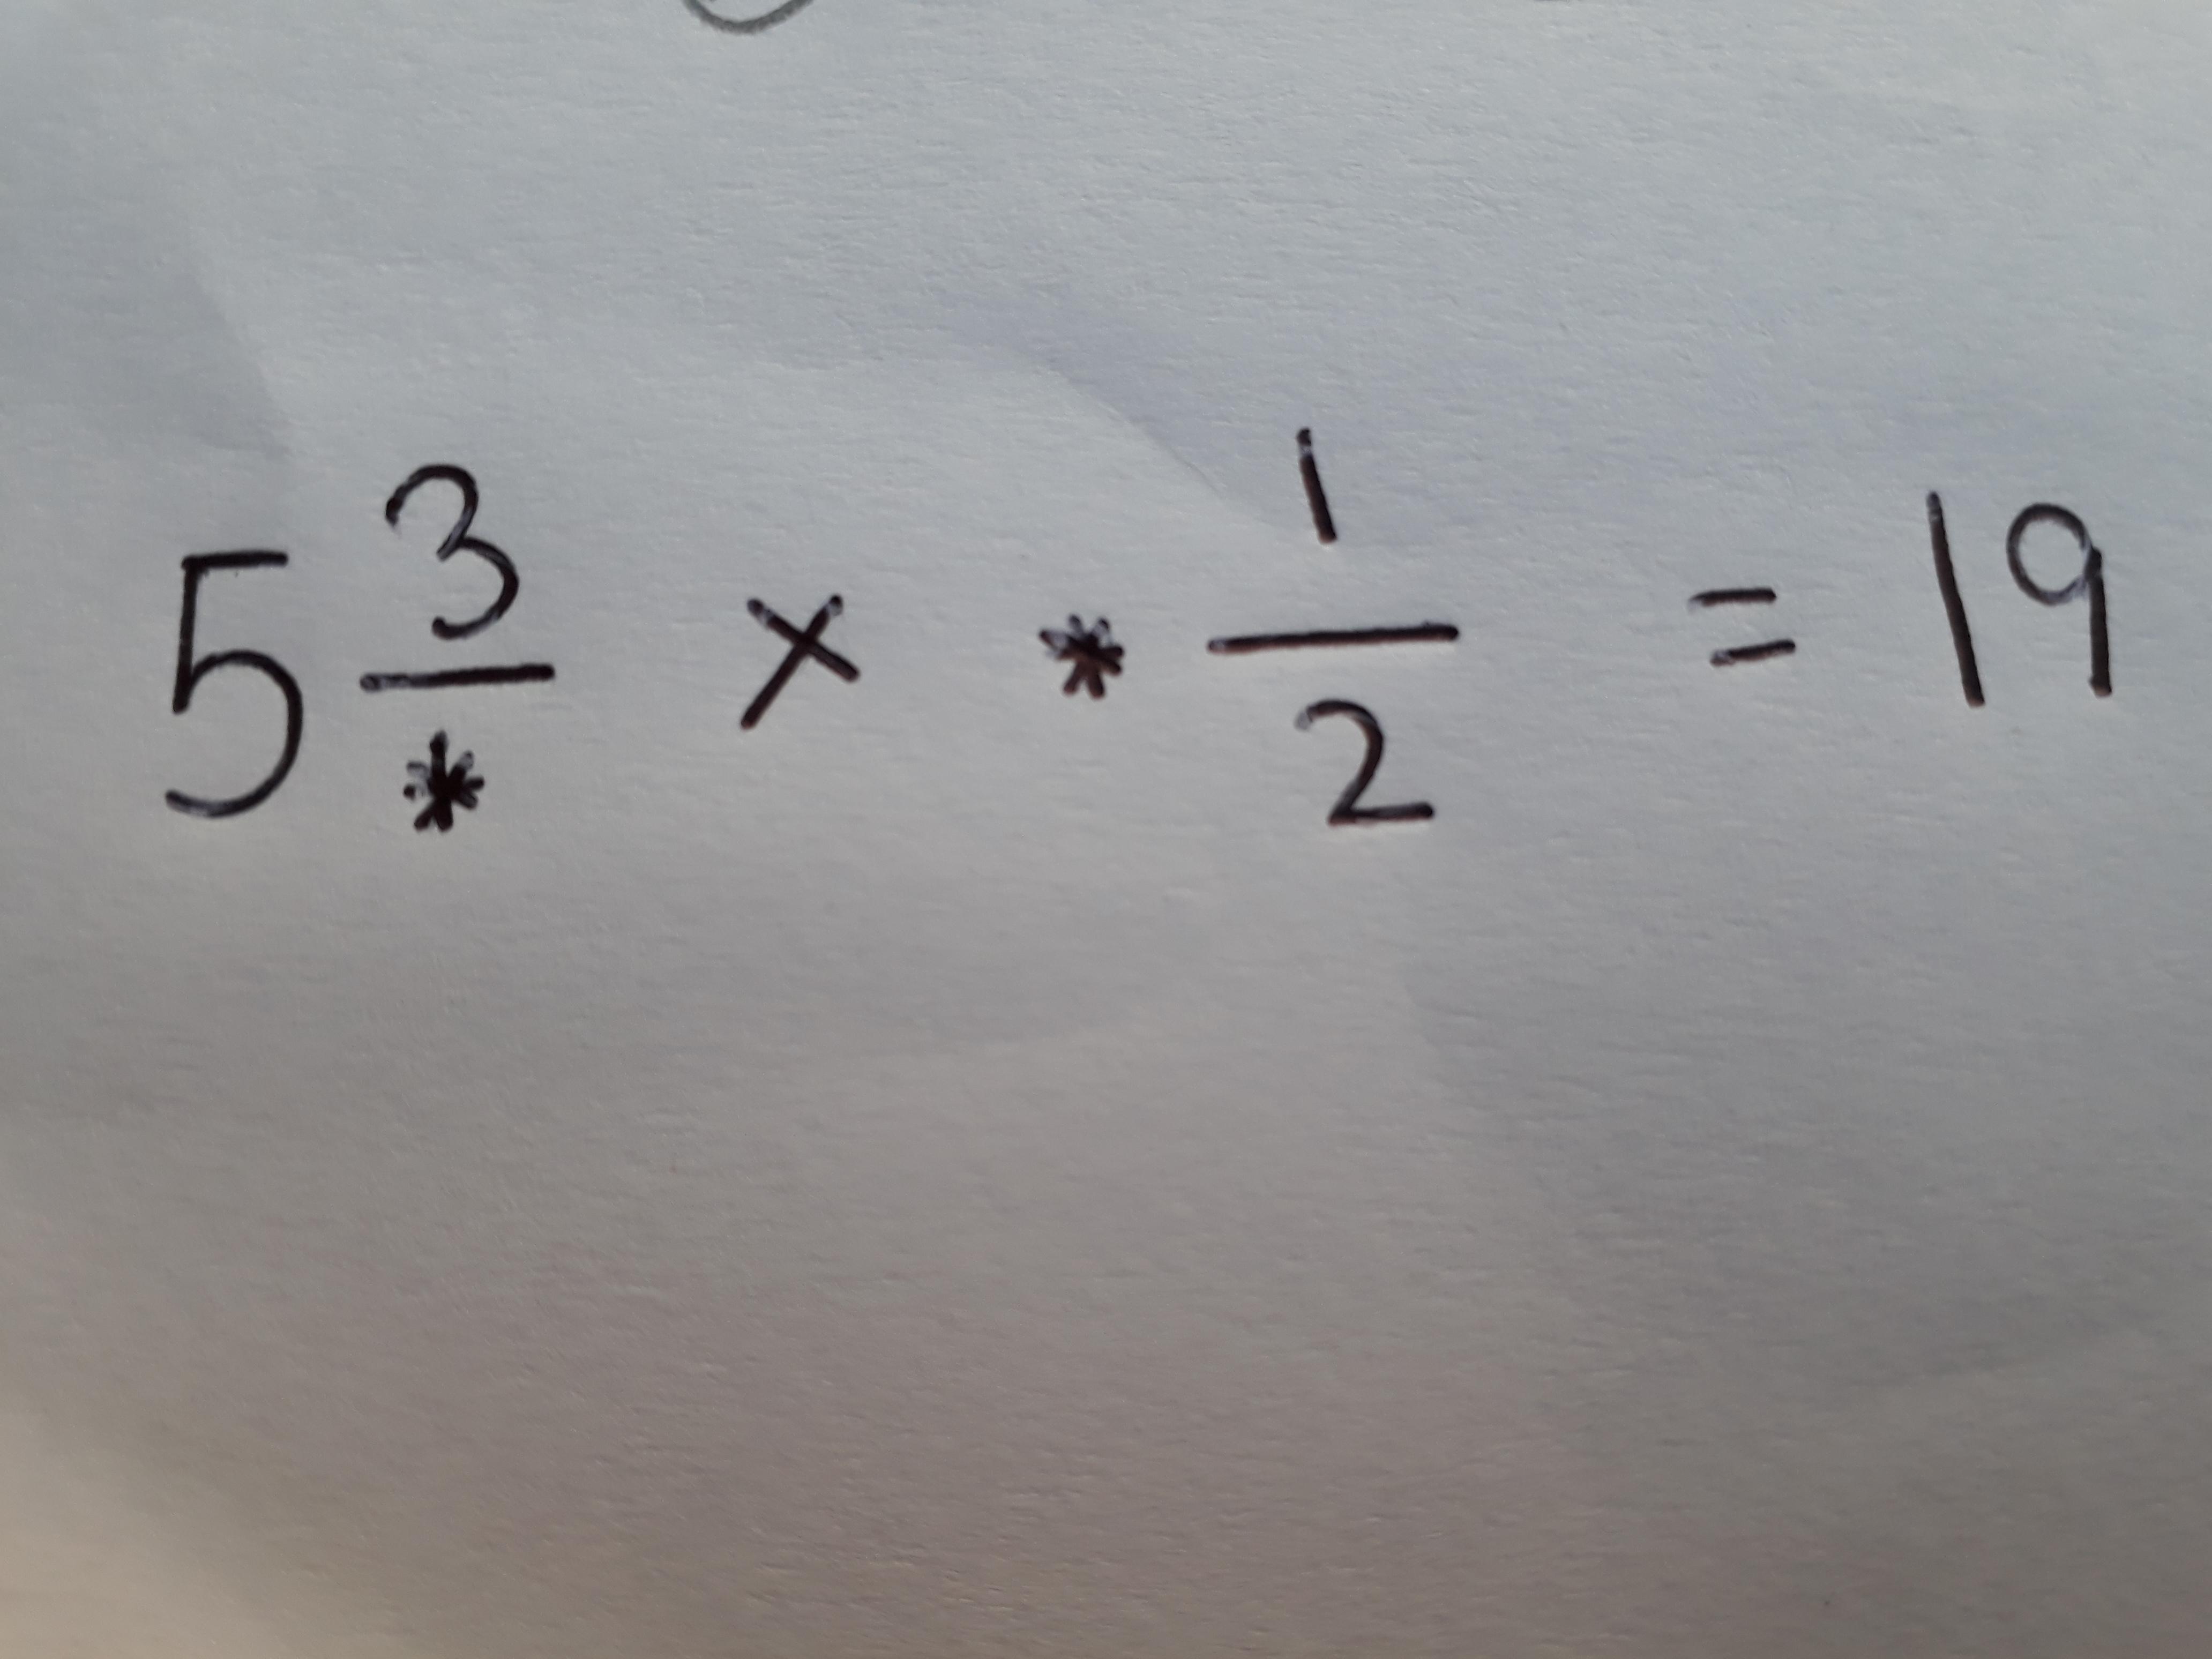 5 3/* × * 1/2 = 19